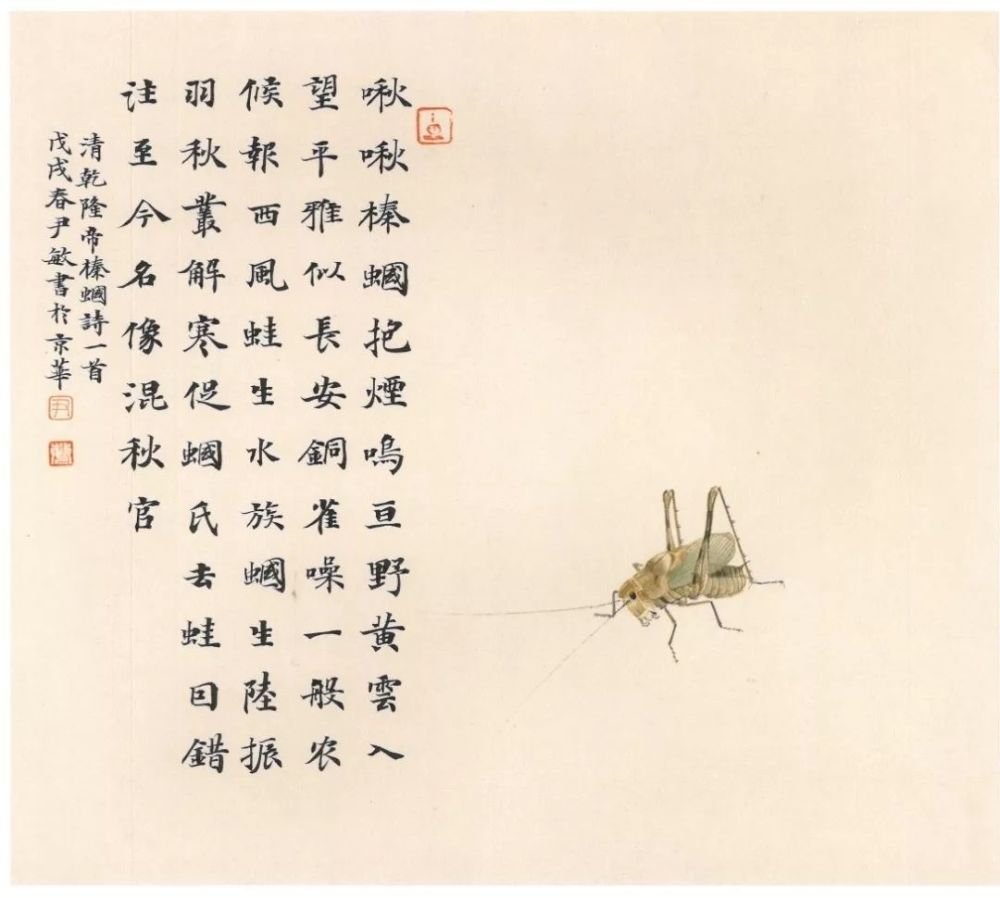 啾啾榛蟈抱煙鳴亘野黄雲入
望平雅似長安銅雀噪一般农
候報西風蛙生水族蟈生陸振
羽秋叢解寒促蟈氏去蛙囙錯
註至今名像混秋官
清乾隆帝榛蟈詩一首
戊戌春尹敏書於京華
尹